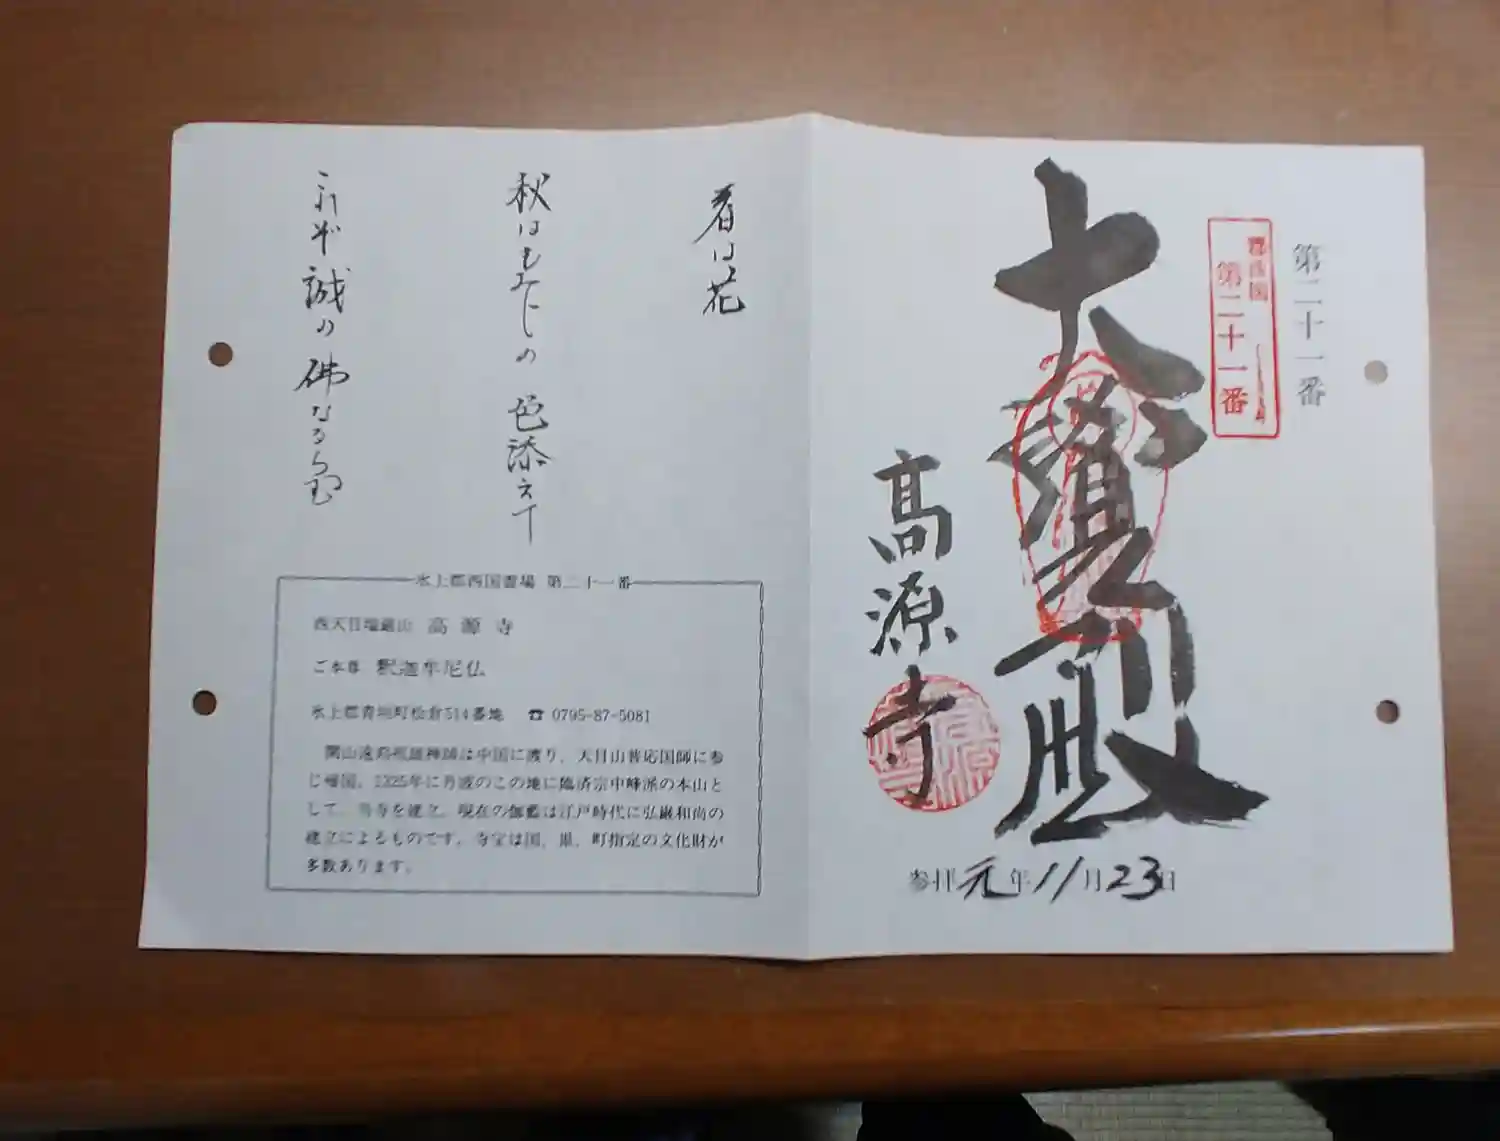 第二十一番
郡西国
第二十一番
大寶殿
高源寺
参拝元年11月23日
春は花
秋はもみじの 色添えて
これぞ誠の佛なるらむ
氷上郡西国霊場 第二十一番
西天目瑞巌山 高源寺
ご本尊 釈迦牟尼仏
氷上郡青垣町桧倉514番地 ☎ 0795-87-5081
開山遠谿祖雄禅師は中国に渡り、天目山普応国師に参
じ帰国、1325年に丹波のこの地に臨済宗中峰派の本山と
して、当寺を建立。現在の伽藍は江戸時代に弘巌和尚の
建立によるものです。寺宝は国、県、町指定の文化財が
多数あります。